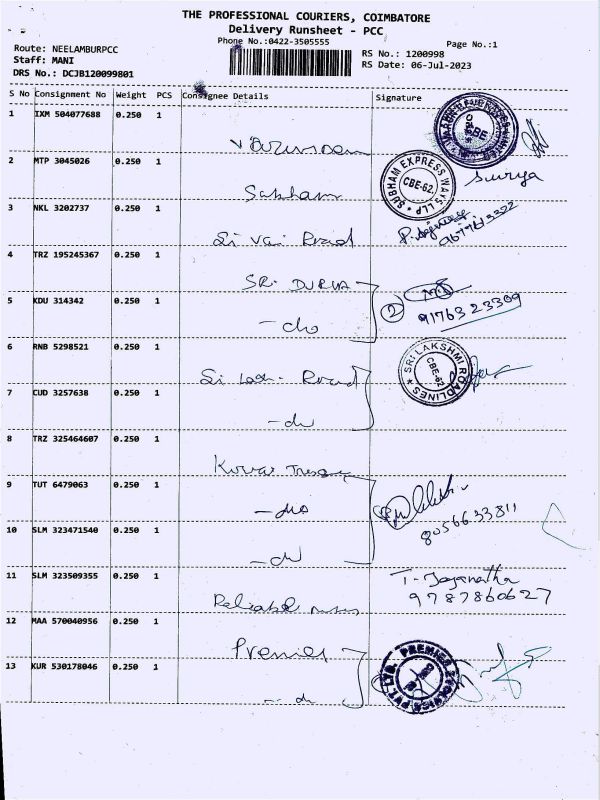 THE PROFESSIONAL COURIERS, COIMBATORE
Delivery Runsheet - PCC
Phone No.:0422-3505555
Page No.:1
Route: NEELAMBURPCC
RS No.: 1200998
Staff: MANI
RS Date: 06-Jul-2023
DRS No.: DCJB120099801
S No Consignment No Weight PCS Consignee Details Signature
1 IXM 504077688 0.250 1
2 MTP 3045026 0.250 1
SUBHAM EXPRESS WAYS LLP
CBE-62.
Surya
Subham
3 NKL 3202737 0.250 1
9677613322
Road
4 TRZ 195245367 0.250 1
SR. DURVA
5 KDU 314342 0.250 1
2
9176323309
- do
6 RNB 5298521 0.250 1
SRI LAKSHMI ROADLINES
CBE-62
Road
7 CUD 3257638 0.250 1
- do
8 TRZ 325464607 0.250 1
9 TUT 6479063 0.250 1
- do
8056633811
10 SLM 323471540 0.250 1
- do
11 SLM 323509355 0.250 1
T. Jaganatha
9787860627
12 MAA 570040956 0.250 1
Premier
13 KUR 530178046 0.250 1
PREMIER PVT LTD.
- do